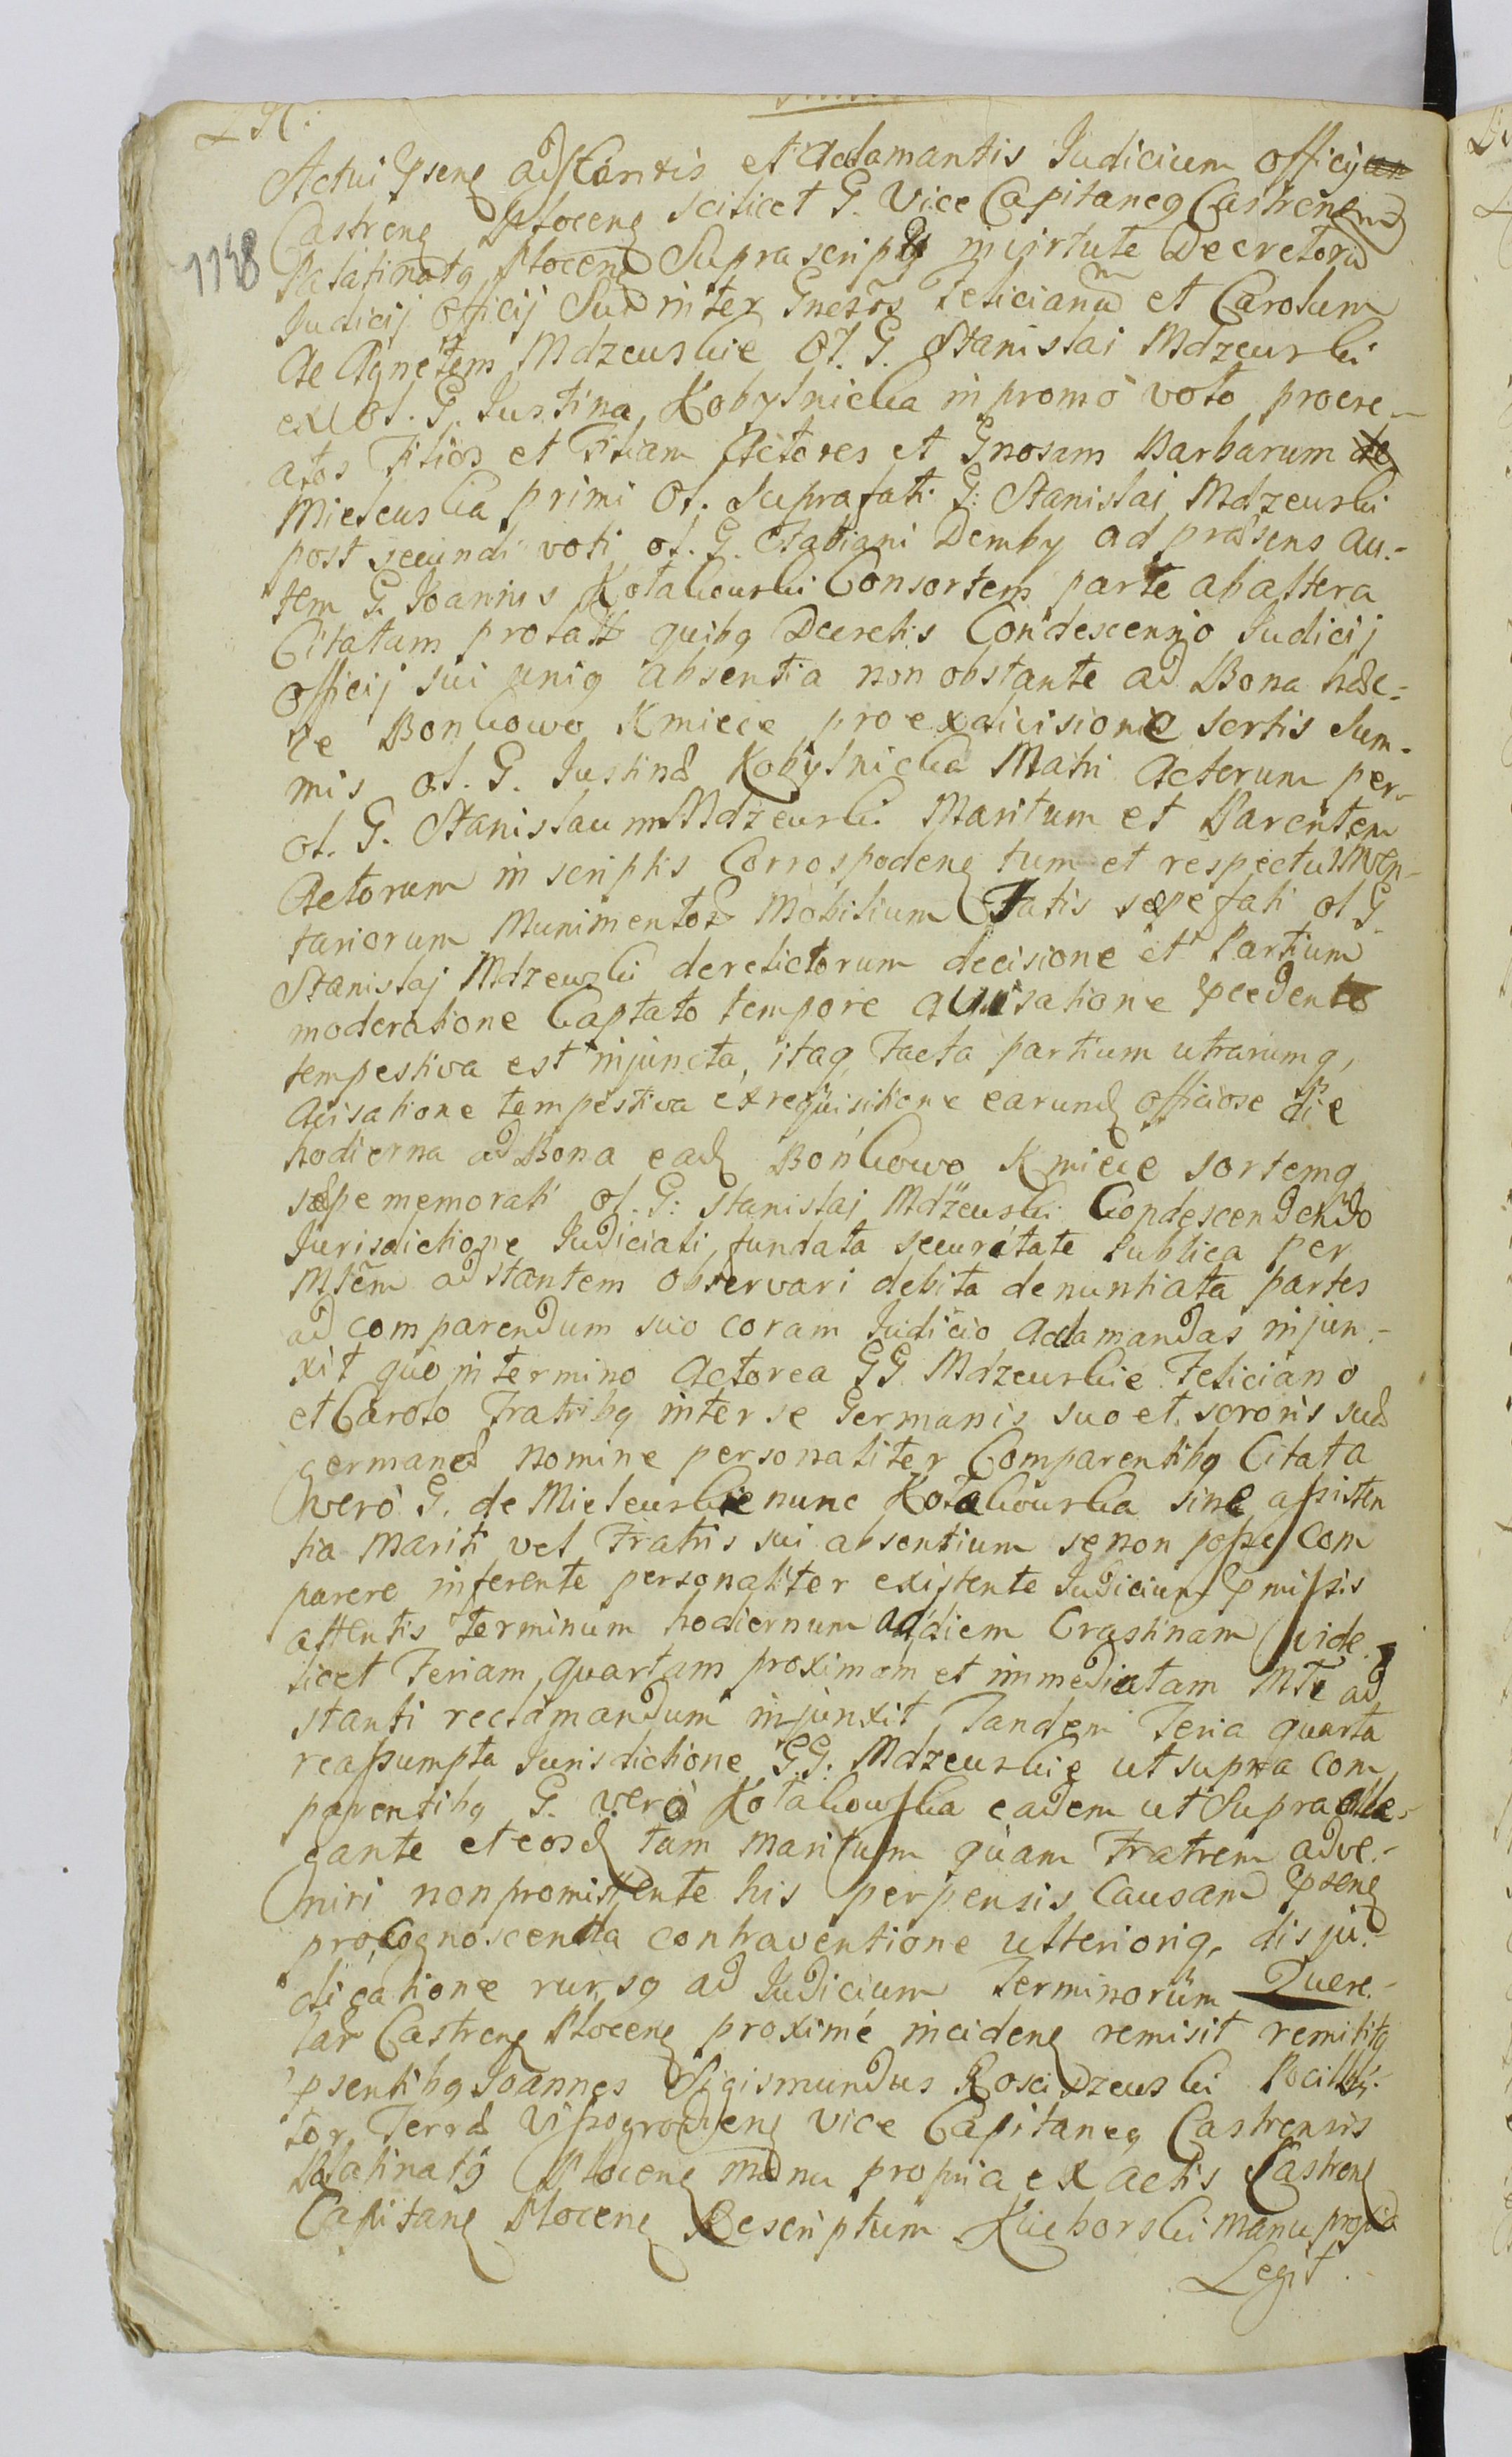 1138
Actui Pseng adstantis et aclamantis Judicium officij
Castreng Ploceng scilicet G. Vice Capitaneg Castreng
Palatinatq Ploceng Suprascriptq in virtute Decretoru
Judicij Officij Sui inter Gnesos Felicianu et Carolum
Ac Agnetem Mdzewskie Ol. G. Stanislai Mdzewski
ex ol. G. Justina Kobylnicka in promo voto procre-
atos Filios et Filiam Actores et Gnosam Barbarum de
Mielewska primi Ol. Suprafati G: Stanislai Mdzewski
post secundi voti ol. G. Fabiani Demby ad præsens au-
tem G. Joannis Kotakowski Consortem parte ab altera
Citatam prolatt quibq Decretis Condescensio Judicij
officij sui uniq absentia non obstante ad Bona hæc-
ce Bonkowo Kmiece pro exdivisione sortis Sum-
mis ol. G. Justinæ Kobylnicka Matri Actorum per
ol. G. Stanislaum Mdzewski Maritum et Parentem
Actorum inscriptis Corrospodeng tum et respectu Inven-
tariorum Munimentor Mobilium Fatis sæpefati ol G.
Stanislaj Mdzewski derelictorum decisione et Partium
moderatione Captato tempore avisatione Pcedente
tempestiva est injuncta, itaq, Facta partium utrarumq,
avisatione tempestiva et requisitione earund officiose die
hodierna ad Bona ead Bońkowo Kmiece sortemq,
sæpe memorati ol. G: Stanislaj Mdzewski Condescendendo
Jurisdictione Judiciali, fundata securitate Publica per
Mtem adstantem observari debita denuntiata partes
ad comparendum suo coram Judicio aclamandas injun-
xit quo in termino Actorea GG. Mdzewskie Feliciano
et Carolo Fratribq inter se Germanis suo et sororis suæ
germanæ nomine personaliter Comparentibq Citata
vero G. de Mielewskie nunc Kotakowska sine assisten
tia Mariti vel Fratris sui absentium se non posse Com
parere inferente personaliter existente Judicium Pmissis
attentis Terminum hodiernum ad diem Crastinam vide-
licet Feriam, quartam proximam et immediatam Mte ad
stanti reclamandum injunxit, Tandem Feria quarta
reassumpta Jurisdictione G.G. Mdzewskie ut supra com
parentibq G. vero Kotakowska eadem ut Supra alle-
gante et eosd tam maritum quam Fratrem adve-
niri non promittente his perpensis Causam Pseng
pro cognoscenda contraventione ulterioriq, disju-
dicatione rursq ad Judicium Terminorum Quere-
lar Castreng Ploceng proxime incideng remisit remititq
psentibq Joannes Sigismundus Kosciszewski Pocilla-
tor Terræ Vissogrodieng vice Capitaneg Castrensis
Palatinatq Ploceng manu propria ex actis Castreng
Capitang Ploceng Rescriptum Kuchorski manu propria
Legit.